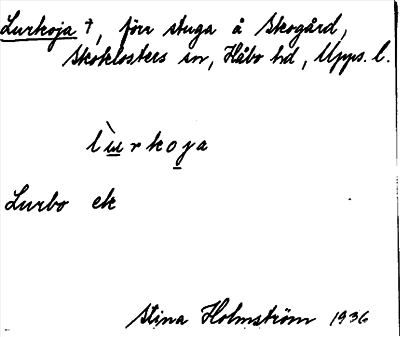 Lurkoja †, förr stuga å Skogård,
Skoklosters sn, Håbo hd, Upps. l.
lùrkoja
Lurbo ek
Stina Holmström 1936